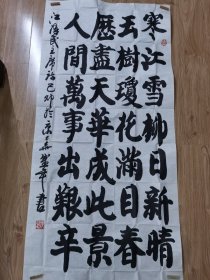 寒江雪柳日新晴
玉樹瓊花滿目春
歷盡天華成此景
人間萬事出艱辛
江澤民主席詩